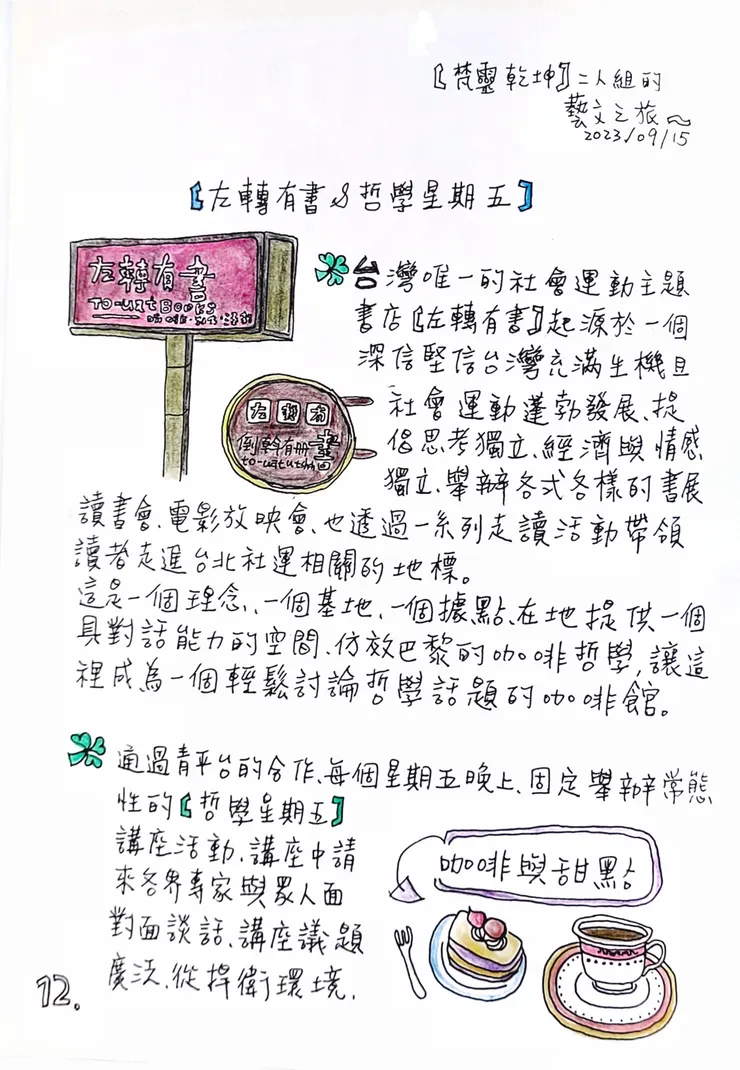 【梵靈乾坤】二人組的
藝文之旅~
2023/09/15
【左轉有書&哲學星期五】
左轉有書
to-uat Books
台灣唯一的社會運動主題
書店【左轉有書】起源於一個
深信堅信台灣充滿生機且
社會運動蓬勃發展、提
倡思考獨立、經濟與情感
獨立、舉辦各式各樣的書展
左轉有書
倒幹有冊
to-uat
讀書會、電影放映會、也透過一系列走讀活動帶領
讀者走進台北社運相關的地標。
這是一個理念、一個基地、一個據點、在地提供一個
具對話能力的空間、仿效巴黎的咖啡哲學,讓這
裡成為一個輕鬆討論哲學話題的咖啡館。
通過青平台的合作、每個星期五晚上、固定舉辦常態
性的【哲學星期五】
講座活動、講座中請
來各界專家與眾人面
對面談話、講座議題
廣泛、從捍衛環境、
咖啡與甜點
12.